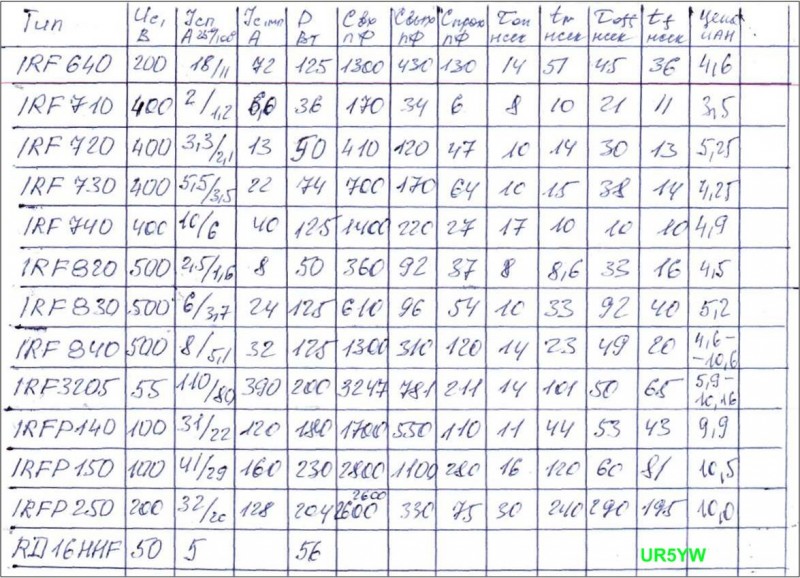 Тип Uc, В Iсп А 25°/100° Ic,имп А P Вт Свх пФ Свых пФ Спрох пФ Ton нсек tr нсек Toff нсек tf нсек Цена UAH
IRF 640 200 18/11 72 125 1300 430 130 14 51 45 36 4,6
IRF 710 400 2/1,2 6,0 36 170 34 6 8 10 21 11 3,5
IRF 720 400 3,3/2,1 13 50 410 120 47 10 14 30 13 5,25
IRF 730 400 5,5/3,5 22 74 700 170 64 10 15 38 14 4,25
IRF 740 400 10/6 40 125 1400 220 27 17 10 10 10 4,9
IRF 820 500 2,5/1,6 8 50 360 92 37 8 8,6 33 16 4,5
IRF 830 500 6/3,7 24 125 610 96 54 10 33 92 40 5,2
IRF 840 500 8/5,1 32 125 1300 310 120 14 23 49 20 4,6-
-10,6
IRF3205 55 110/80 390 200 3247 781 211 14 101 50 65 5,9-
10,16
IRFP140 100 31/22 120 180 1700 550 110 11 44 53 43 9,9
IRFP150 100 41/29 160 230 2800 1100 280 16 120 60 81 10,5
2600
IRFP250 200 32/20 128 204 2600 330 75 30 240 290 195 10,0
RD16HHF 50 5 56
UR5YW